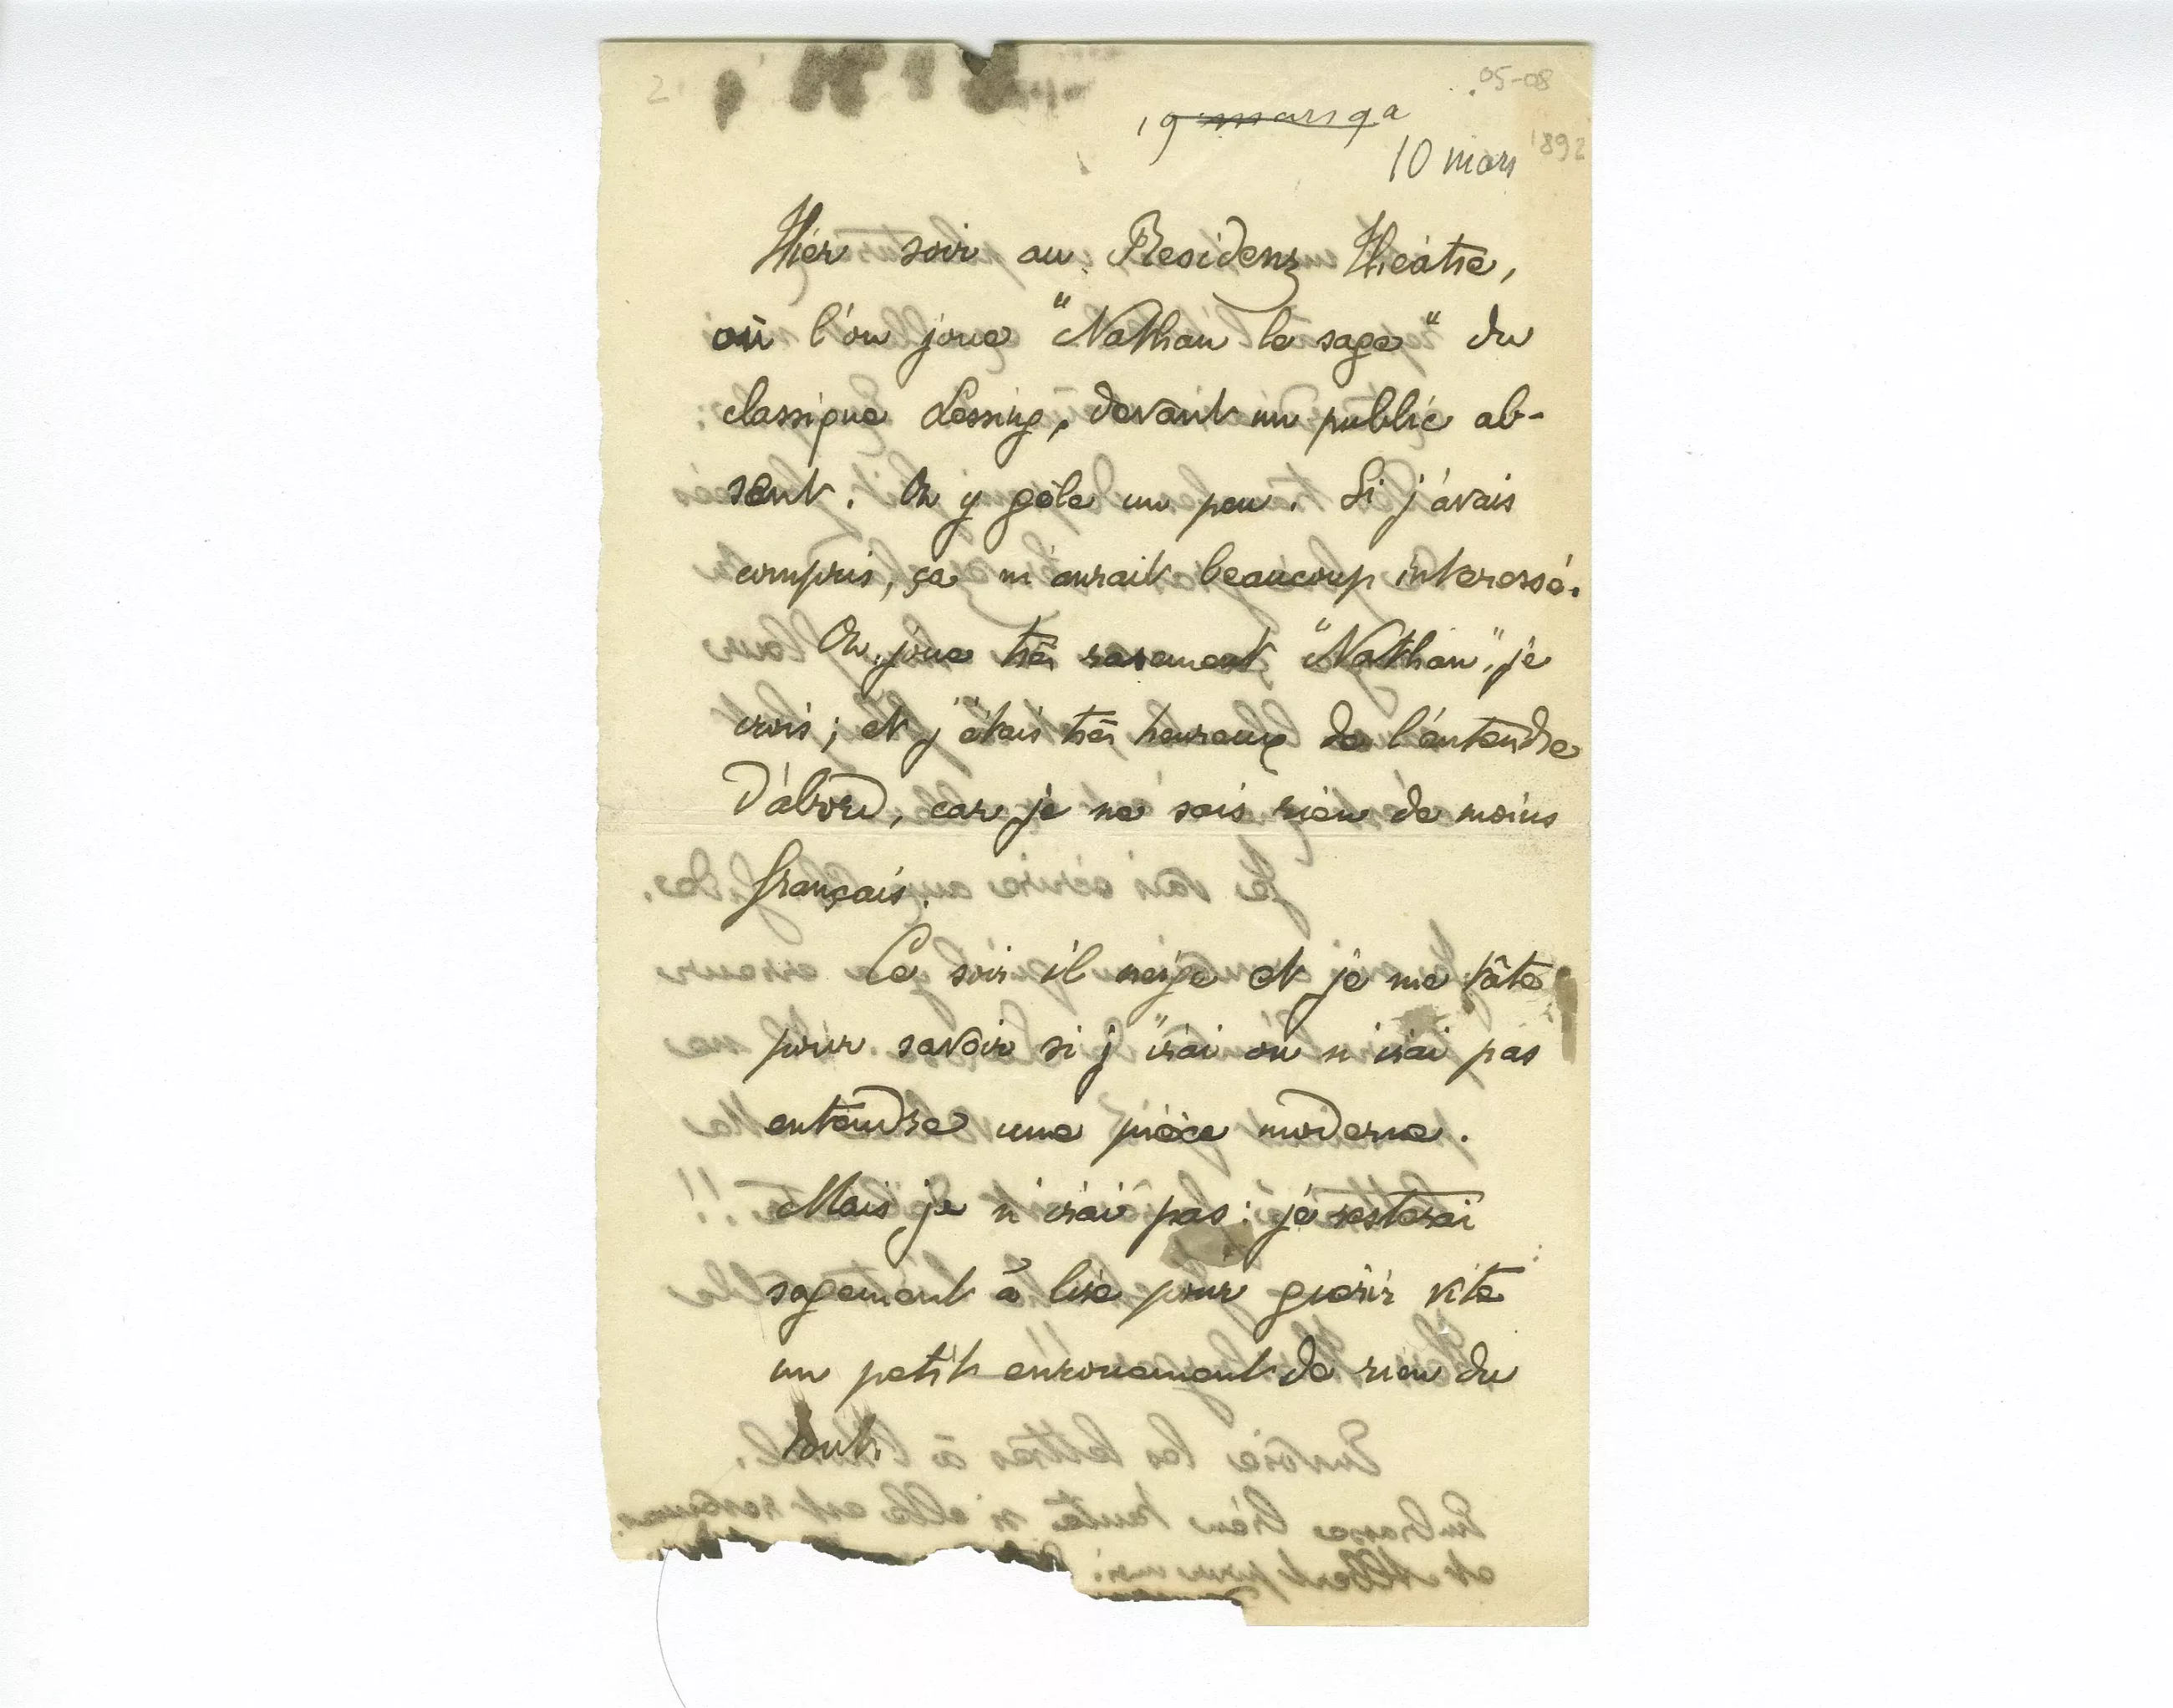 2
05-08
19 mars 92
10 mars 1892
Hier soir au Residenz Théâtre,
où l'on joue "Nathan le sage" du
classique Lessing, devant un public ab-
sent. On y gèle un peu. Si j'avais
compris, ça m'aurait beaucoup interessé.
On joue très rarement "Nathan", je
crois; et j'étais très heureux de l'entendre
d'abord, car je ne sais rien de moins
français.
Ce soir il neige et je me tâte
pour savoir si j'irai ou n'irai pas
entendre une pièce moderne.
Mais je n'irai pas: je resterai
sagement à lire pour guérir vite
un petit enrouement de rien du
tout.